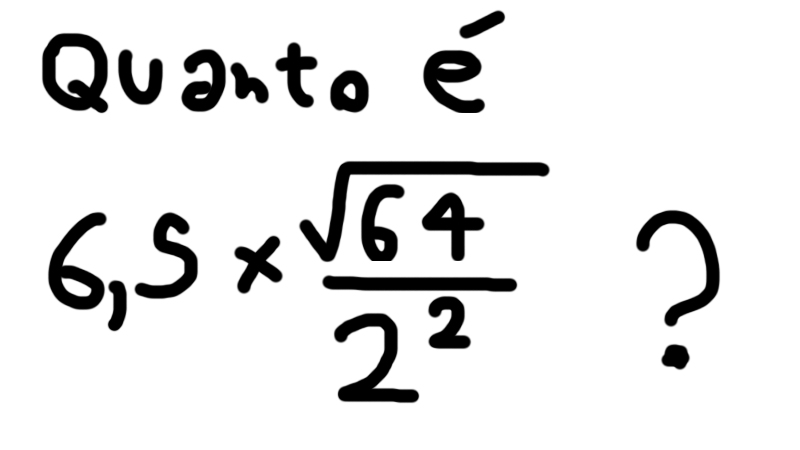 Quanto é
6,5 × √64 / 2² ?